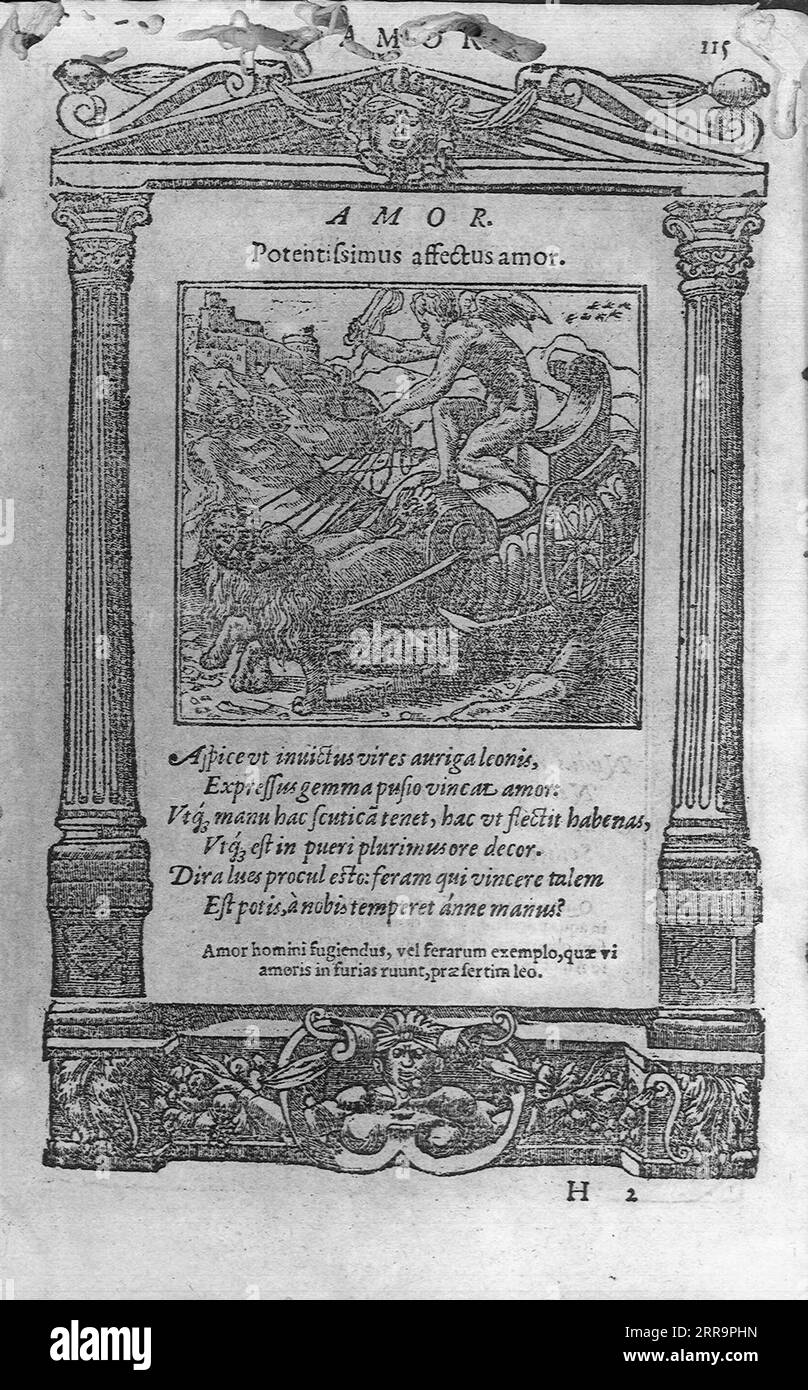 AMOR
115
AMOR.
Potentiſsimus affectus amor.
Aſpice vt inuictus vires auriga leonis,
Expreſſus gemma puſio vincat amor:
Vtq́ꝫ manu hac ſcuticā tenet, hac vt flectit habenas,
Vtq́ꝫ eſt in pueri plurimus ore decor.
Dira lues procul eſto: feram qui vincere talem
Eſt potis, à nobis temperet ánne manus?
Amor homini fugiendus, vel ferarum exemplo, quæ vi
amoris in furias ruunt, præſertim leo.
H 2
alamy
alamy
Image ID: 2RR9PHN
www.alamy.com